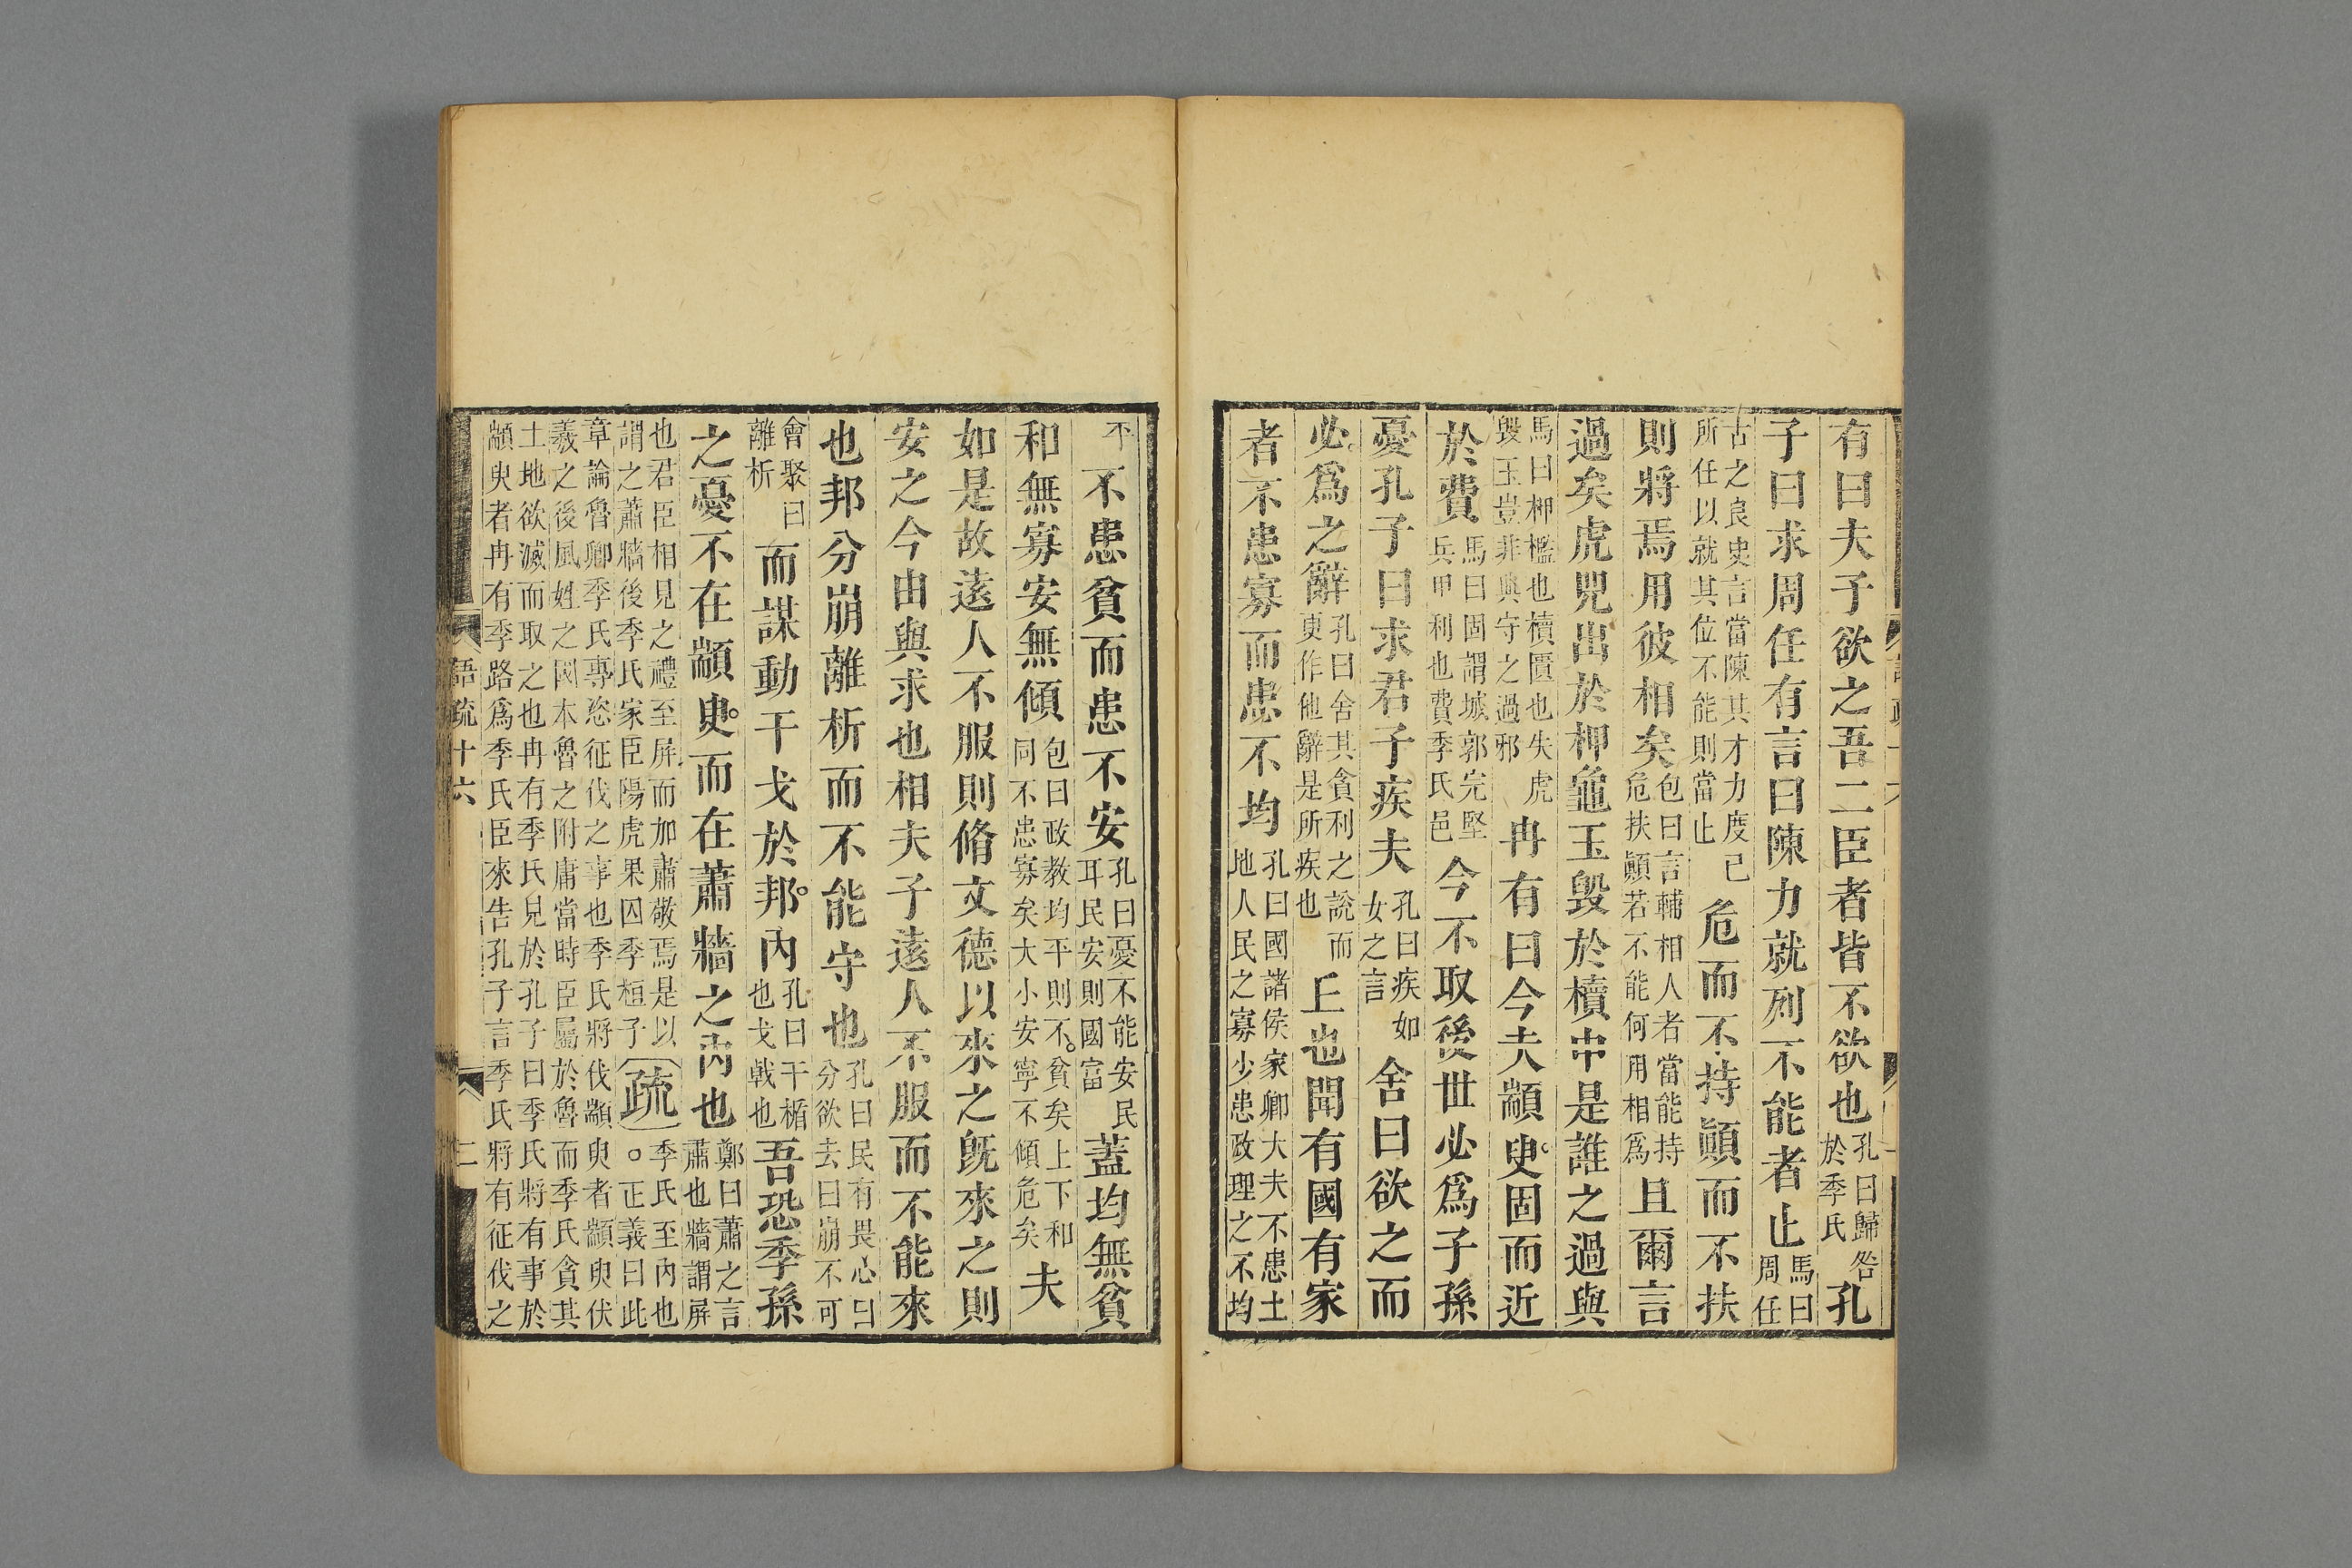 有曰夫子欲之吾二臣者皆不欲也孔曰歸咎於季氏孔
子曰求周任有言曰陳力就列不能者止馬曰周任
古之良史言當陳其才力度已所任以就其位不能則當止危而不持顚而不扶
則將焉用彼相矣包曰言輔相人者當能持危扶顚若不能何用相爲且爾言
過矣虎兕出於柙龜玉毁於櫝中是誰之過與
馬曰柙檻也櫝匱也失虎毁玉豈非典守之過邪冉有曰今夫顓臾固而近
於費馬曰固謂城郭完堅兵甲利也費季氏邑今不取後世必爲子孫
憂孔子曰求君子疾夫孔曰疾如女之言舍曰欲之而
必爲之辭孔曰舍其貪利之說而更作他辭是所疾也丘也聞有國有家
者不患寡而患不均孔曰國諸侯家卿大夫不患土地人民之寡少患政理之不均
平不患貧而患不安孔曰憂不能安民耳民安則國富蓋均無貧
和無寡安無傾包曰政教均平則不。貧矣上下和同不患寡矣大小安寧不傾危矣夫
如是故遠人不服則脩文德以來之既來之則
安之今由與求也相夫子遠人不服而不能來
也邦分崩離析而不能守也孔曰民有畏心曰分欲去曰崩不可
會聚曰離析而謀動干戈於邦。內孔曰干楯也戈戟也吾恐季孫
之憂不在顓臾。而在蕭牆之內也鄭曰蕭之言肅也牆謂屏
也君臣相見之禮至屏而加肅敬焉是以謂之蕭牆後季氏家臣陽虎果囚季桓子疏季氏至內也。正義曰此
章論魯卿季氏專恣征伐之事也季氏將伐顓臾者顓臾伏羲之後風姓之國本魯之附庸當時臣屬於魯而季氏貪其
土地欲滅而取之也冉有季氏見於孔子曰季氏將有事於顓臾者冉有季路爲季氏臣來告孔子言季氏將有征伐之
語疏十六 二